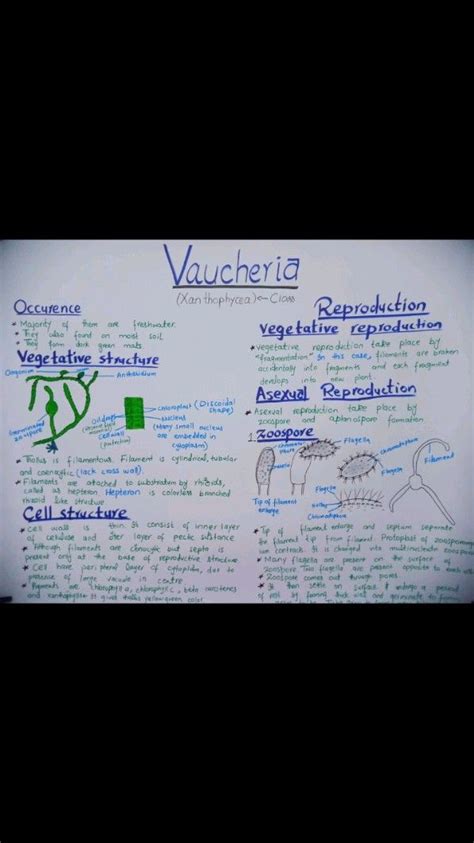 Vaucheria
(Xanthophycea) ← Class
Occurence
* Majority of them are freshwater.
* They also found on moist soil
* They form dark green mats.
Vegetative structure
Oogonium
Antheridium
Germinated zoospore
Oil drop
(reserve food material)
Cell wall
(protection)
chloroplast (Discoidal shape)
Nucleus
(Many small nucleus are embedded in cytoplasm)
* Thallus is filamentous. Filament is cylindrical, tubular
and coenocytic (lack cross wall).
* Filaments are attached to substratum by rhizoids,
called as hepteron. Hepteron is colorless branched
rhizoid like structure
Cell structure
* Cell wall is thin. It consist of inner layer
of cellulose and outer layer of pectic substance
* Although filaments are coenocytic but septa is
present only at the base of reproductive structure
* Cell have peripheral layer of cytoplasm, due to
presence of large vacuole in centre
* Pigments are chlorophyll a, chlorophyll c, beta carotenes
and xanthophylls. It gives thallus yellow green color.
Reproduction
Vegetative reproduction
* Vegetative reproduction take place by
"fragmentation". In this case, filaments are broken
accidentally into fragments and each fragment
develops into new plant.
Asexual Reproduction
* Asexual reproduction take place by
zoospore and aplanospore formation.
1. Zoospore
Chromatophore
Flagella
Chromatophore
Nuclei
Flagella
Filament
Tip of filament enlarge
Flagella
Nuclei
Chromatophore
* Tip of filament enlarge and septum separate
the filament tip from filament. Protoplast of zoosporangium
contract. It is changed into multinucleate zoospore
* Many flagella are present on the surface of
zoospore. Two flagella are present opposite to each
* Zoospore comes out through pores.
* It then settle on surface & undergo a period
of rest by forming thick wall and germinate to form